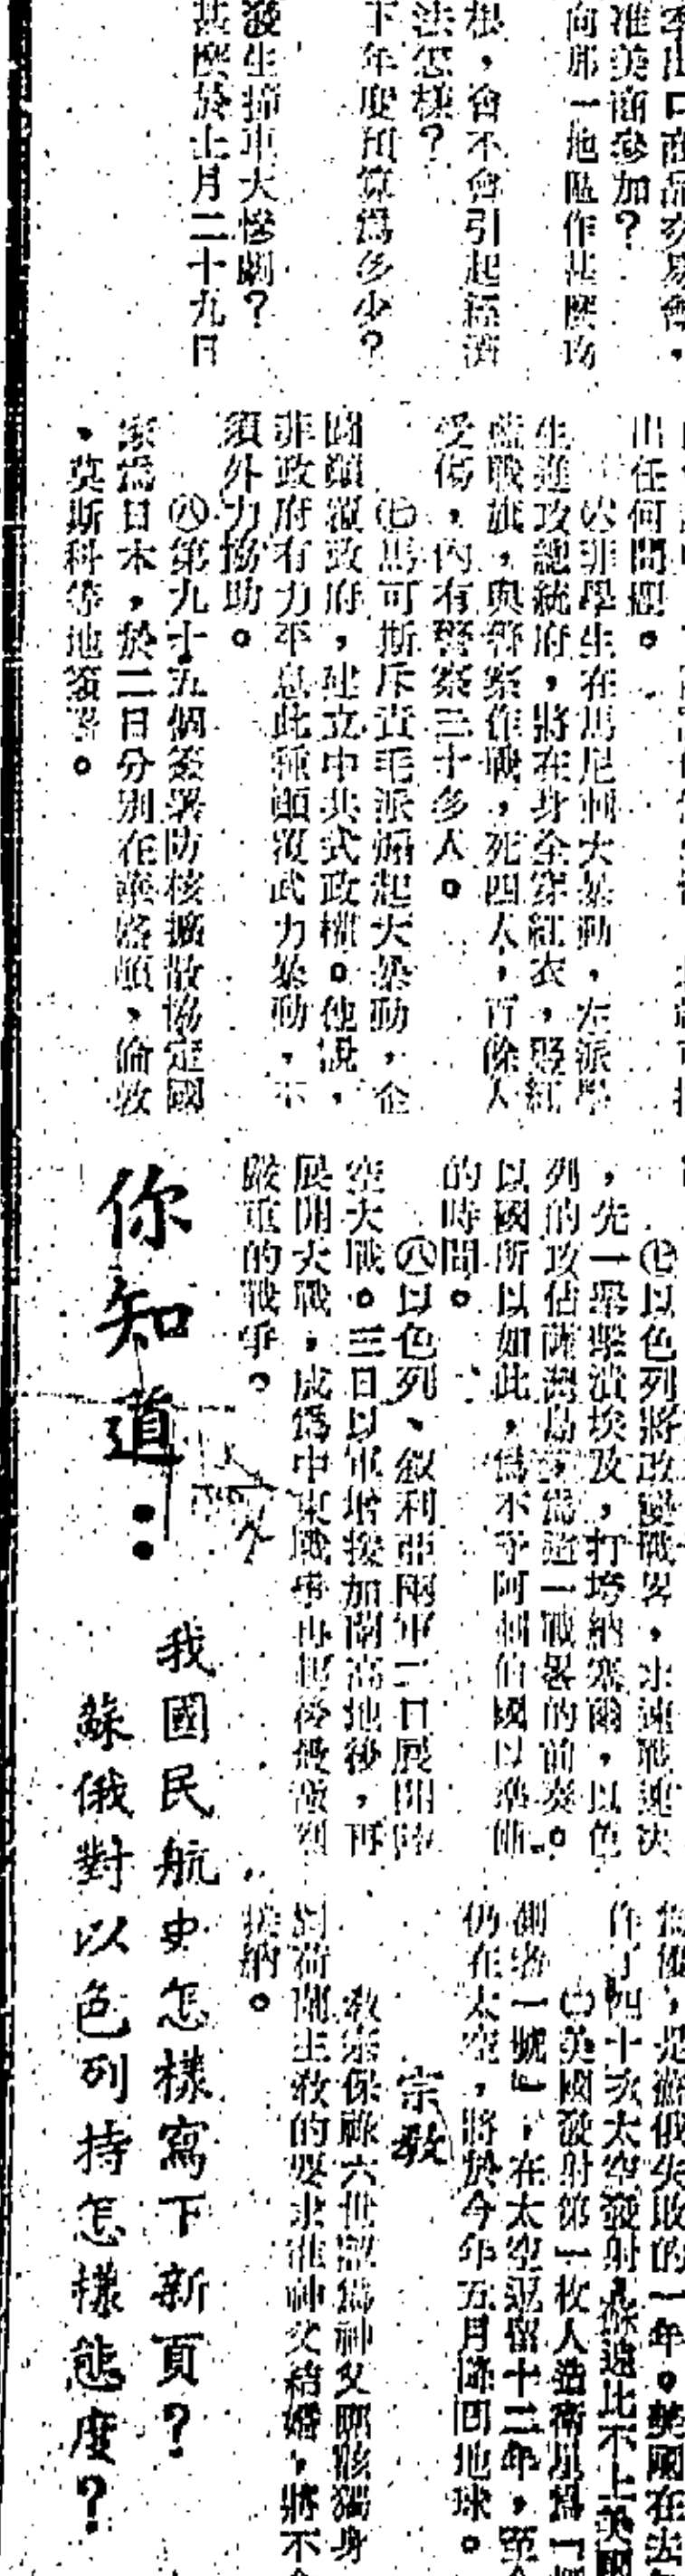 李出口商品交易會，
准美商參加？
向那一地區作甚麼攻
根，會不會引起經濟
法怎樣？
下年度預算為多少？
發生撞車大慘劇？
甚麼於上月二十九日
出任何問題。
㈥菲學生在馬尼剌大暴動，左派學
生進攻總統府，將在身全穿紅衣，豎紅
藍戰旗，與警察作戰，死四人，百餘人
受傷，內有警察三十多人。
㈦馬可斯斥責毛派煽起大暴動，企
圖顛覆政府，建立中共式政權。他說，
非政府有力平息此種顛覆武力暴動，不
須外力協助。
㈧第九十五個簽署防核擴散協定國
家為日本，於二日分別在華盛頓、倫敦
、莫斯科等地簽署。
㈦以色列將改變戰畧，求速戰速決
，先一舉擊潰埃及，打垮納塞爾，以色
列的攻佔薩爾島，為這一戰畧的前奏。
以國所以如此，為不予阿剌伯國以準備
的時間。
㈧以色列、叙利亞兩軍二日展開陸
空大戰。三日以軍增援加蘭高地後，再
展開大戰，成為中東戰爭再起後最激烈
嚴重的戰爭。
是蘇俄失敗的一年。美國在去
作了四十次太空發射，蘇遠比不上美國
㈡美國發射第一枚人造衛星為「探
測者一號」，在太空逗留十二年，至今
仍在太空，將於今年五月降回地球。
宗教
教宗保祿六世認為神父應該獨身
對荷蘭主教的要求准神父結婚，將不會
接納。
你知道：
我國民航史怎樣寫下新頁？
蘇俄對以色列持怎樣態度？